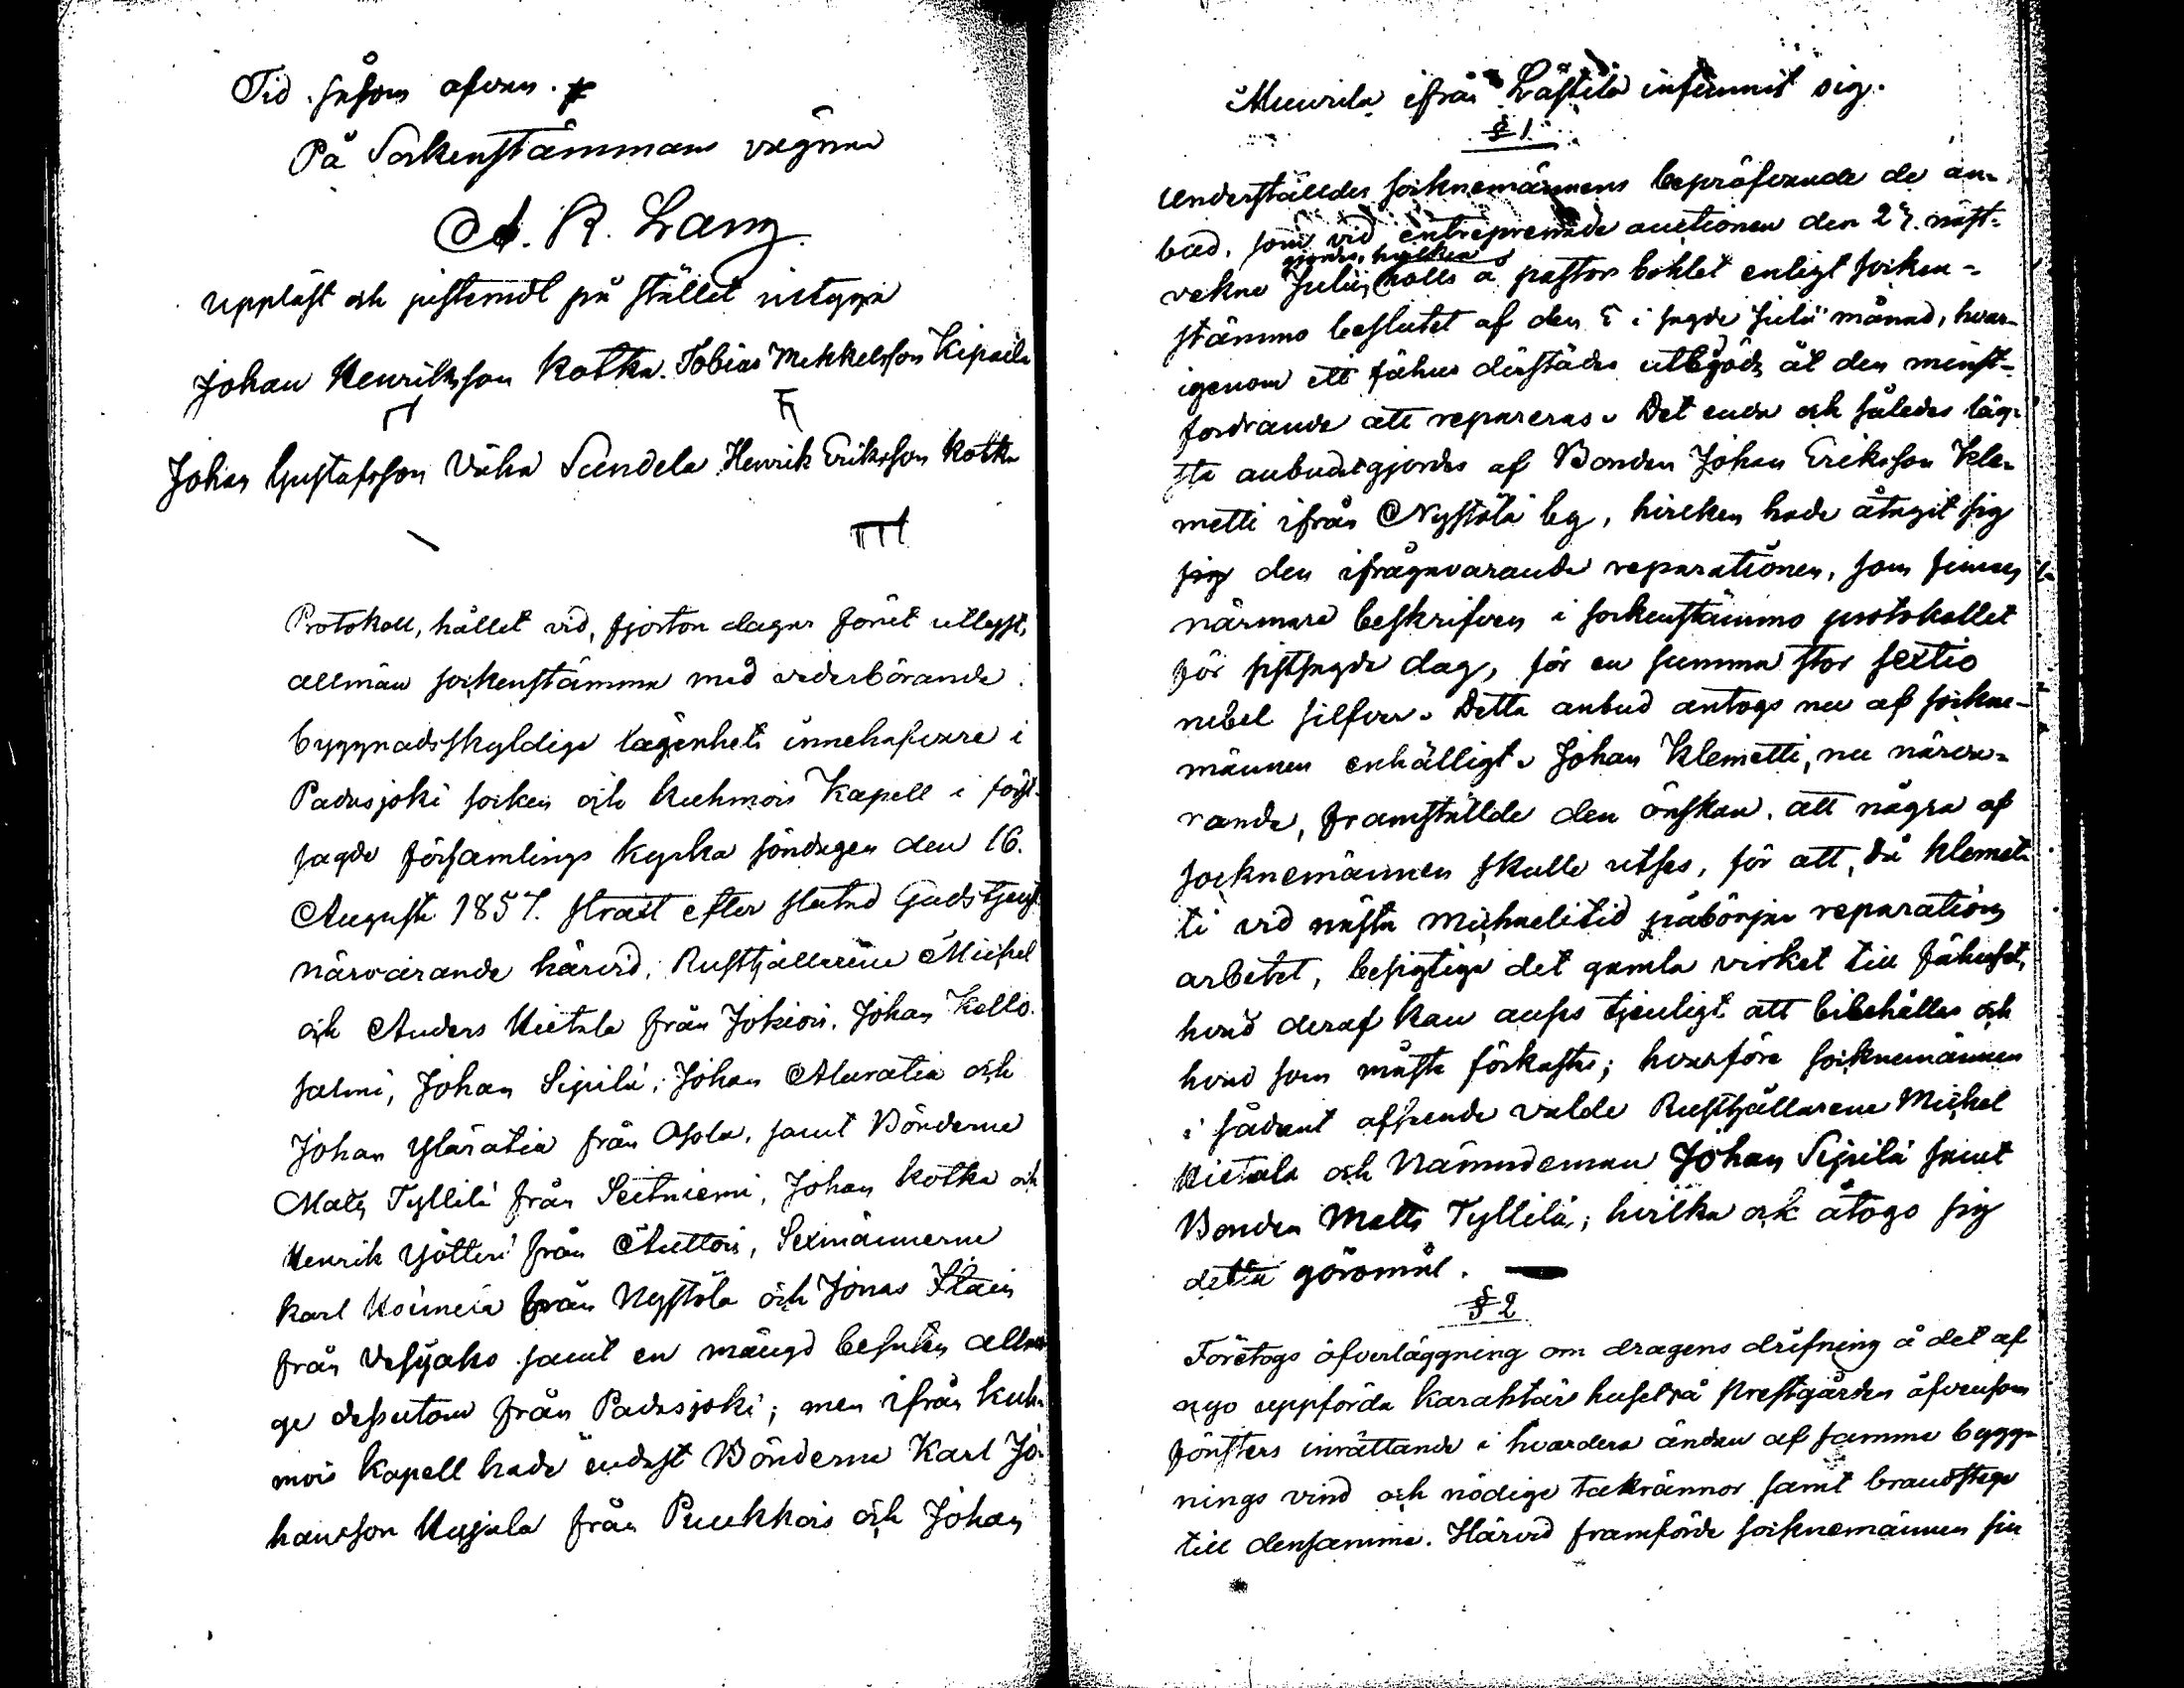 Tid såsom ofvan.
På Sockenstämmans vägnar
A. R. Lang.
Uppläst och justeradt på stället intyga
Johan Henriksson Kotka. Tobias Mikkelsson Kipaila
Johan Gustafsson Väha Sundela Henrik Eriksson Kotka
Protokoll, hållet vid, fjorton dagar förut utlyst,
allmän sockenstämma med vederbörande
byggnadsskyldige lägenhets innehafvare i
Padasjoki socken och Kuhmois Kapell i först-
sagde församlings kyrka söndagen den 16.
Augusti 1857. straxt efter slutad Gudstjenst
närvarande härvid, Rusthållarene Michel
och Anders Hietala från Jokiois, Johan Kello-
salmi, Johan Sipilä, Johan Alaratia och
Johan Yläratia från Osola, samt Bönderne
Matts Tyllilä från Seitniemi, Johan Kotka och
Henrik Yötteri från Auttois, Sexmännerne
Karl Uoimeia från Nystölä och Jonas Stain
från Vesijako samt en mängd besuten allmo-
ge dessutom från Padasjoki; men ifrån Kuh-
mois Kapell hade endast Bönderne Karl Jo-
hansson Uujala från Puukkois och Johan
Muurila ifrån Lästilä infunnit sig.
§ 1
Underställdes socknemännens bepröfvande de an-
bud, som vid entreprenade auctionen den 27. näst-
gjordes, hvilken
vekne Julii, hölls å pastors bohlet enligt socken-
stämmo beslutet af den 5 i sagde Julii månad, hvar-
igenom ett fähus derstädes utbjöds åt den minst-
fordrande att repareras. Det enda och således läg-
sta anbudet gjordes af Bonden Johan Eriksson Kle-
metti ifrån Nystölä by, hvilken hade åtagit sig
sig den ifrågavarande reparationen, som finnes
närmare beskrifven i sockenstämmo protokollet
för sistsagde dag, för en summa stor sextio
rubel silfver. Detta anbud antogs nu af sockne-
männen enhälligt. Johan Klemetti, nu närva-
rande, framställde den önskan, att några af
socknemännen skulle utses, för att, då Klemet-
ti vid nästa Michaelitid påbörjar reparations
arbetet, besigtiga det gamla virket till fähuset,
hvad deraf kan anses tjenligt att bibehållas och
hvad som måste förkastas; hvarföre socknemännen
i sådant afseende valde Rusthållarene Michel
Hietala och Nämndeman Johan Sipilä samt
Bonden Matts Tyllilä, hvilka ock åtogo sig
detta göromål.
§ 2
Företogs öfverläggning om dragens drifning å det af
nyo uppförda Karaktärshuset på Prestgården äfvensom
fönsters inrättande i hvardera ändan af samma bygg-
nings vind och nödige takrännor samt brandstege
till densamma. Härvid framförde socknemännen sin